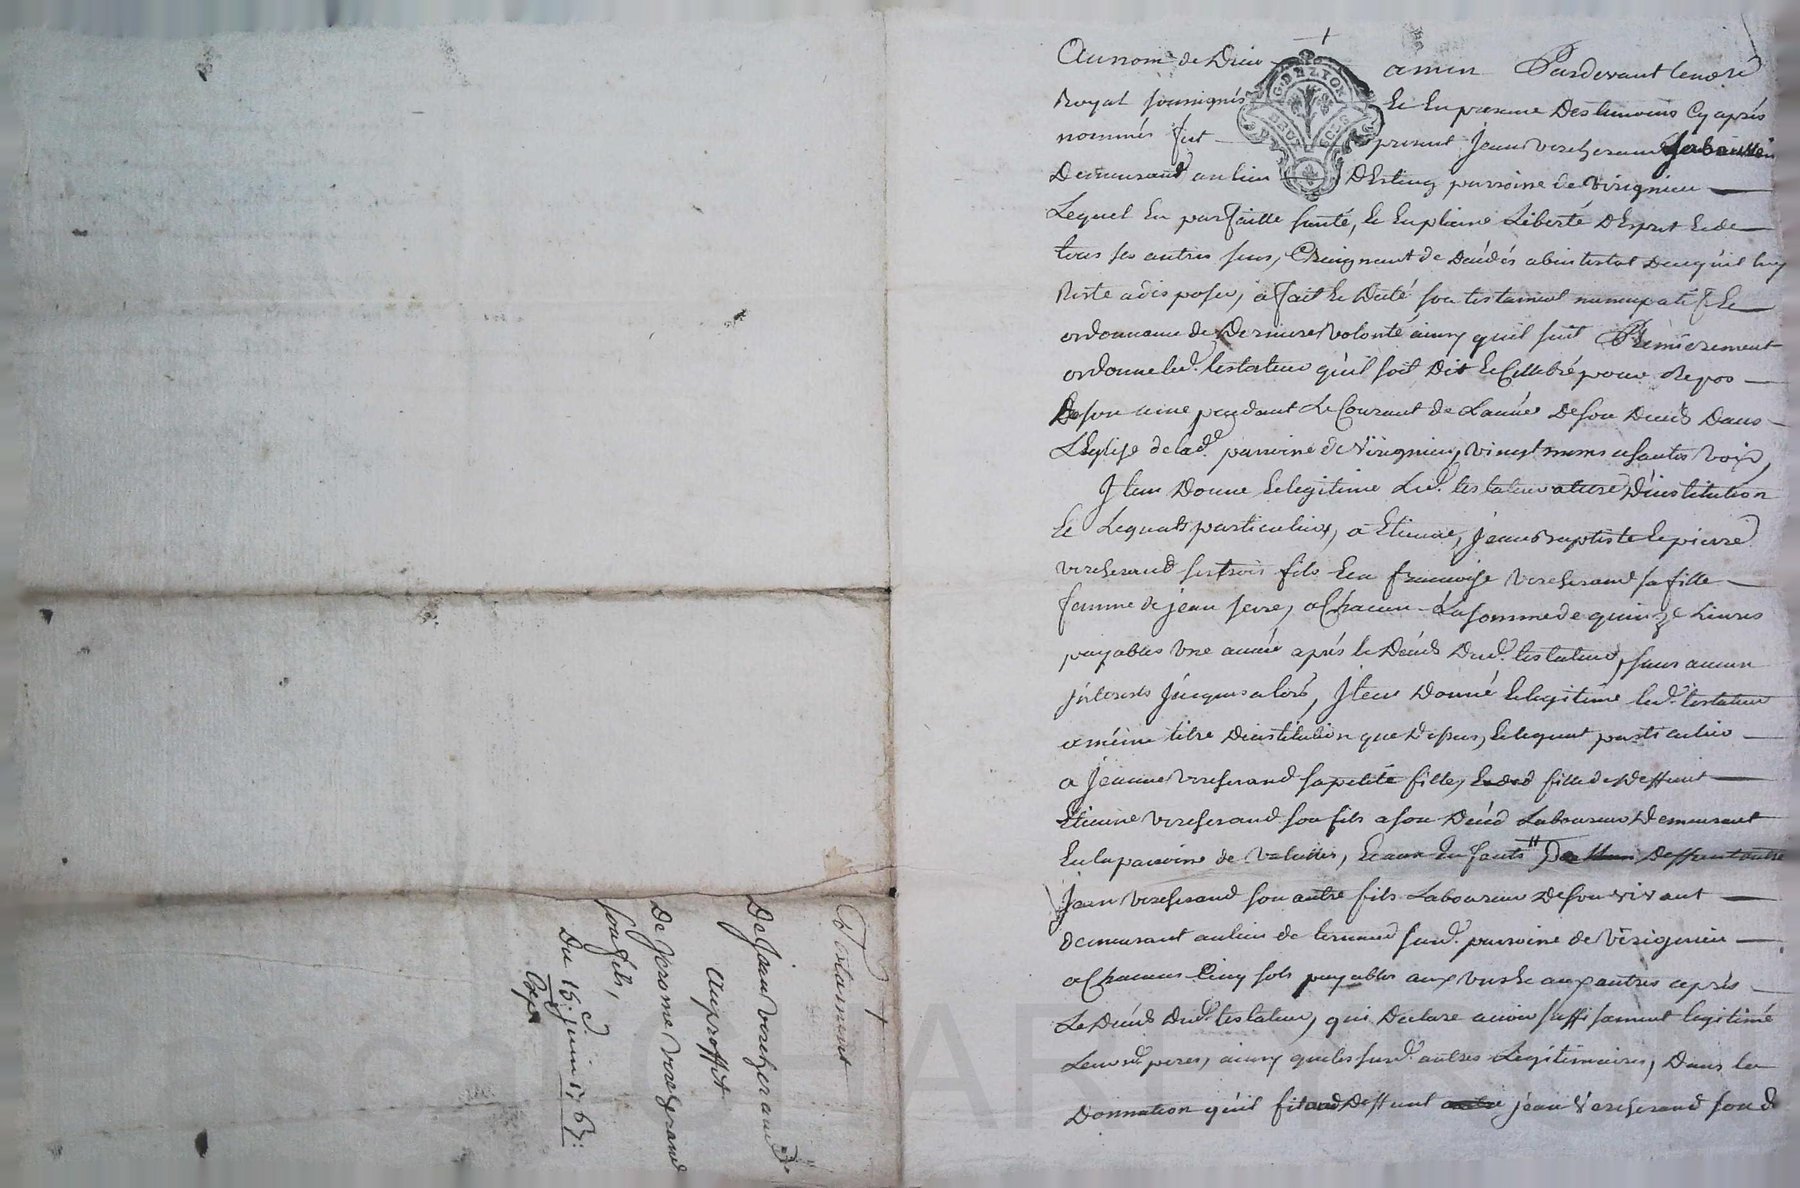 Au nom de Dieu amen Pardevant le no.re
Royal soussigné Et En presence Des temoins Cy après
nommés fut present Jean Vercherand
Demeurant au lieu DEstieug parroisse de Virignieu
Lequel En parfaitte santé, Et En pleine Liberté DEsprit Et de
tous ses autres sens, Craignant de Décéder abintestat Dece qu'il luy
Reste a disposer, a fait Et Dicté son testament nuncupatif Et
ordonnance de Derniere Volonté ainsy quil suit Premierement
ordonne led. testateur qu'il soit Dit Et Cellebré pour Repos
De son ame pendant Le Courant de L'année De son Decés Dans
L'Eglise de lad.e parroisse de Virignieu, vingt messes a hautes voix,
Item Donne Et legitime Led. testateur a titre D'institution
Et Legats particuliers, a Etienne, Jean baptiste Et pierre
vercherand ses trois fils Et a francoise Vercherand sa fille
femme de jean serre, a Chacun La somme de quinze Livres
payables Une année après le Décés Dud. testateur, sans aucun
jnterests jusques a lors, Item Donne Et legitime led. testateur
a même titre Dinstitution que Dessus, Et legat particulier
a Jeanne Vercherand sa petite fille, fille de Deffunt
Etienne Vercherand son fils a son Décés Laboureur Demeurant
En la parroisse de Et aux Enfants Deffunt autre
Jean Vercherand son autre fils Laboureur De son vivant
demeurant au lieu de sus d. parroisse de Virignieu
a Chacuns Cinq sols payables aux Uns Et aux autres après
Le Décés Dud. testateur, qui Declare avoir suffisament legitimé
Leursd. peres, ainsy que les susd. autres Legitimaires, Dans la
Donnation qu'il fit aud Deffunt jean Vercherand son d
Testament
De Jean Vercherand
Au proffit
De Jerome Vercherand
son fils,
Du 15.e juin 1767.
Exp